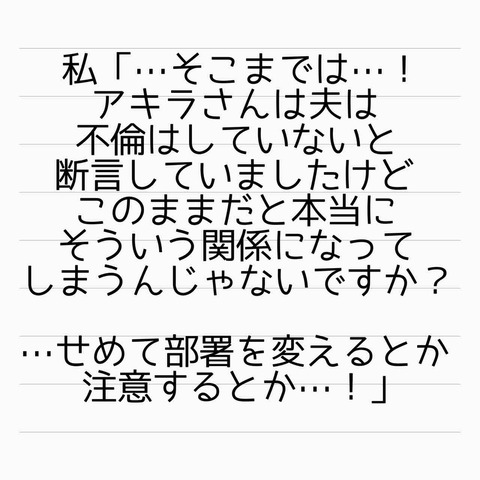 私「…そこまでは…！
アキラさんは夫は
不倫はしていないと
断言していましたけど
このままだと本当に
そういう関係になって
しまうんじゃないですか？
…せめて部署を変えるとか
注意するとか…！」